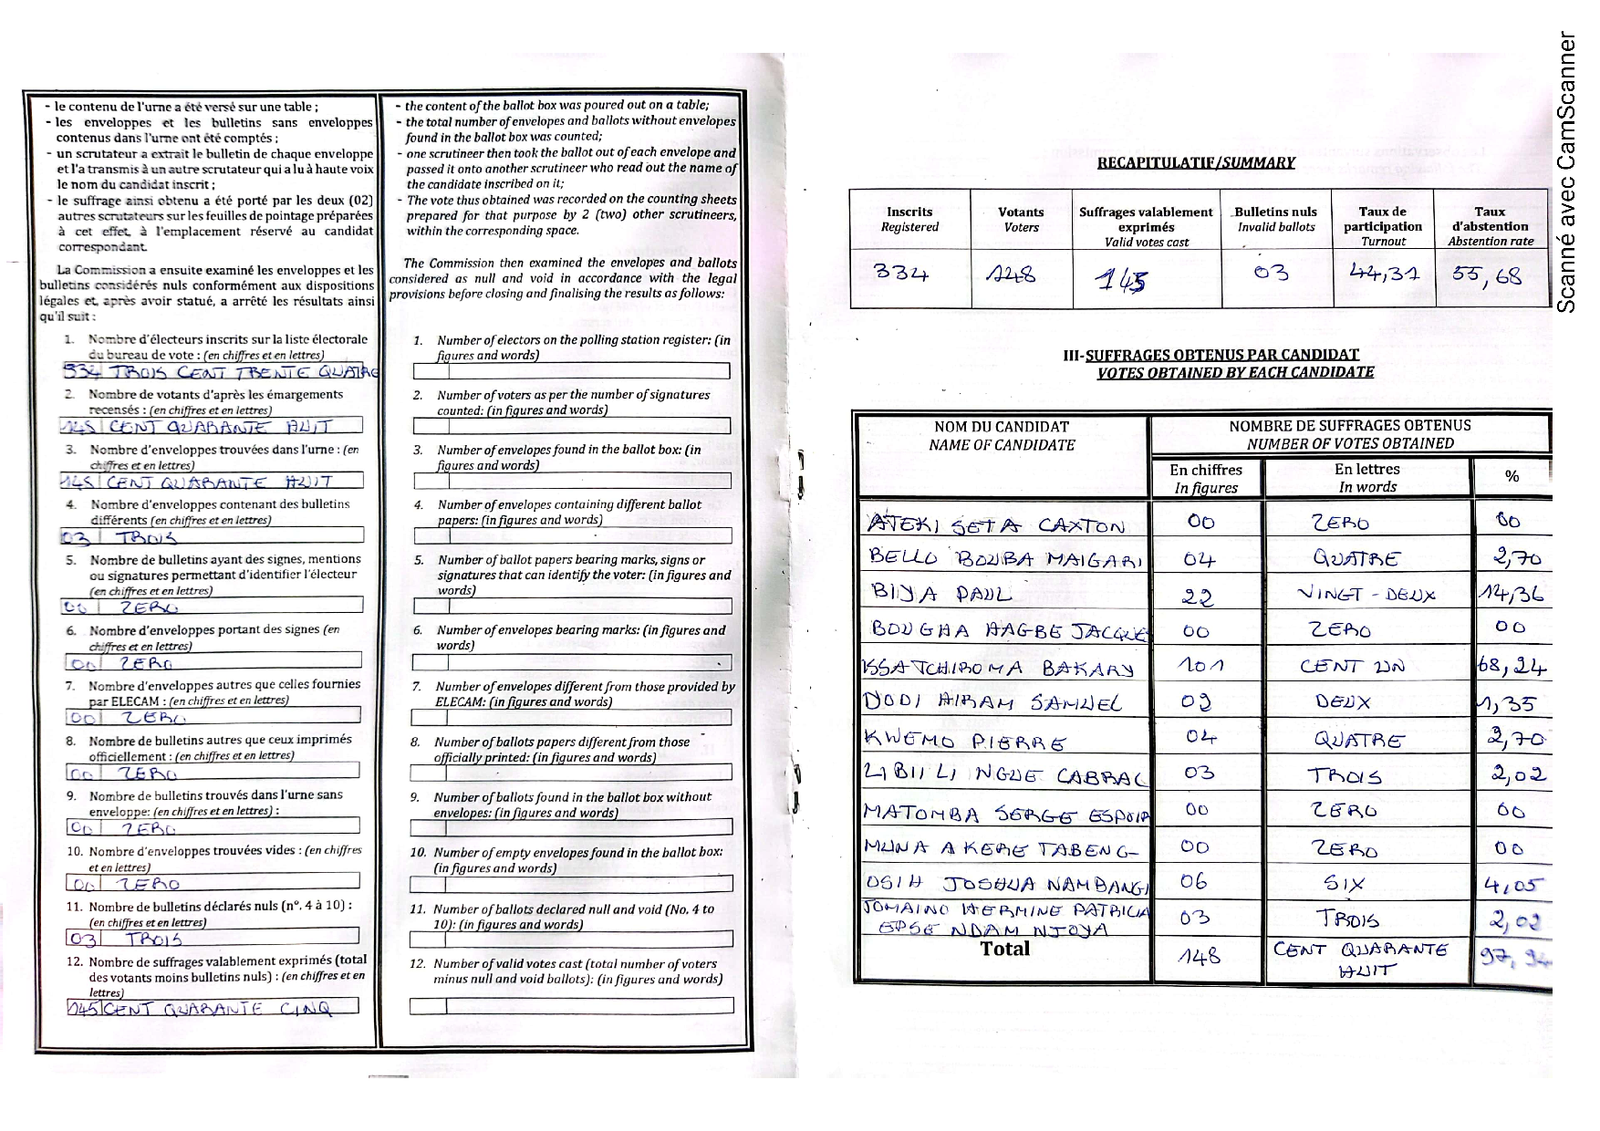 - le contenu de l'urne a été versé sur une table ;
- les enveloppes et les bulletins sans enveloppes
contenus dans l'urne ont été comptés ;
- un scrutateur a extrait le bulletin de chaque enveloppe
et l'a transmis à un autre scrutateur qui a lu à haute voix
le nom du candidat inscrit ;
- le suffrage ainsi obtenu a été porté par les deux (02)
autres scrutateurs sur les feuilles de pointage préparées
à cet effet, à l'emplacement réservé au candidat
correspondant.
La Commission a ensuite examiné les enveloppes et les
bulletins considérés nuls conformément aux dispositions
légales et, après avoir statué, a arrêté les résultats ainsi
qu'il suit :
1. Nombre d'électeurs inscrits sur la liste électorale
du bureau de vote : (en chiffres et en lettres)
334 TROIS CENT TRENTE QUATRE
2. Nombre de votants d'après les émargements
recensés : (en chiffres et en lettres)
148 CENT QUARANTE HUIT
3. Nombre d'enveloppes trouvées dans l'urne : (en
chiffres et en lettres)
148 CENT QUARANTE HUIT
4. Nombre d'enveloppes contenant des bulletins
différents (en chiffres et en lettres)
03 TROIS
5. Nombre de bulletins ayant des signes, mentions
ou signatures permettant d'identifier l'électeur
(en chiffres et en lettres)
00 ZERO
6. Nombre d'enveloppes portant des signes (en
chiffres et en lettres)
00 ZERO
7. Nombre d'enveloppes autres que celles fournies
par ELECAM : (en chiffres et en lettres)
00 ZERO
8. Nombre de bulletins autres que ceux imprimés
officiellement : (en chiffres et en lettres)
00 ZERO
9. Nombre de bulletins trouvés dans l'urne sans
enveloppe: (en chiffres et en lettres) :
00 ZERO
10. Nombre d'enveloppes trouvées vides : (en chiffres
et en lettres)
00 ZERO
11. Nombre de bulletins déclarés nuls (n°. 4 à 10) :
(en chiffres et en lettres)
03 TROIS
12. Nombre de suffrages valablement exprimés (total
des votants moins bulletins nuls) : (en chiffres et en
lettres)
145 CENT QUARANTE CINQ
- the content of the ballot box was poured out on a table;
- the total number of envelopes and ballots without envelopes
found in the ballot box was counted;
- one scrutineer then took the ballot out of each envelope and
passed it onto another scrutineer who read out the name of
the candidate inscribed on it;
- The vote thus obtained was recorded on the counting sheets
prepared for that purpose by 2 (two) other scrutineers,
within the corresponding space.
The Commission then examined the envelopes and ballots
considered as null and void in accordance with the legal
provisions before closing and finalising the results as follows:
1. Number of electors on the polling station register: (in
figures and words)
2. Number of voters as per the number of signatures
counted: (in figures and words)
3. Number of envelopes found in the ballot box: (in
figures and words)
4. Number of envelopes containing different ballot
papers: (in figures and words)
5. Number of ballot papers bearing marks, signs or
signatures that can identify the voter: (in figures and
words)
6. Number of envelopes bearing marks: (in figures and
words)
7. Number of envelopes different from those provided by
ELECAM: (in figures and words)
8. Number of ballots papers different from those
officially printed: (in figures and words)
9. Number of ballots found in the ballot box without
envelopes: (in figures and words)
10. Number of empty envelopes found in the ballot box:
(in figures and words)
11. Number of ballots declared null and void (No. 4 to
10): (in figures and words)
12. Number of valid votes cast (total number of voters
minus null and void ballots): (in figures and words)
RECAPITULATIF/SUMMARY
Inscrits Votants Suffrages valablement Bulletins nuls Taux de Taux
Registered Voters exprimés Invalid ballots participation d'abstention
Valid votes cast Turnout Abstention rate
334 148 145 03 44,31 55,68
III-SUFFRAGES OBTENUS PAR CANDIDAT
VOTES OBTAINED BY EACH CANDIDATE
NOM DU CANDIDAT NOMBRE DE SUFFRAGES OBTENUS
NAME OF CANDIDATE NUMBER OF VOTES OBTAINED
En chiffres En lettres %
In figures In words
ATEKI SETA CAXTON 00 ZERO 00
BELLO BOUBA MAIGARI 04 QUATRE 2,70
BIYA PAUL 22 VINGT - DEUX 14,36
BOUGHA HAGBE JACQUE 00 ZERO 00
ISSA TCHIROMA BAKARY 101 CENT UN 68,24
IYODI HIRAM SAMUEL 02 DEUX 1,35
KWEMO PIERRE 04 QUATRE 2,70
LIBII LI NGUE CABRAL 03 TROIS 2,02
MATOMBA SERGE ESPOIR 00 ZERO 00
MUNA AKERE TABENG- 00 ZERO 00
OSIH JOSHUA NAMBANGI 06 SIX 4,05
TOMAINO HERMINE PATRICIA 03 TROIS 2,02
EPSE NDAM NJOYA
Total 148 CENT QUARANTE
HUIT
Scanné avec CamScanner